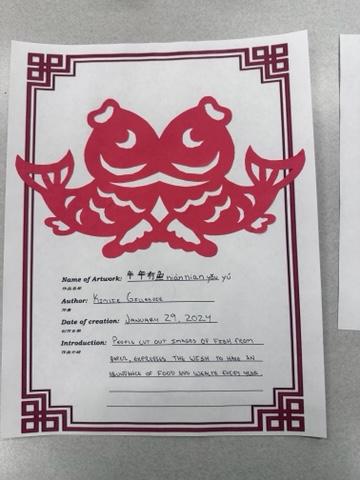 Name of Artwork: 年年有鱼 niánnian yǒu yú
作品名称
Author:
作者
Date of creation: JANUARY 29, 2024
创作日期
Introduction: PEOPLE CUT OUT IMAGES OF FISH FROM
作品介绍
PAPER, EXPRESSES THE WISH TO HAVE AN
ABUNDANCE OF FOOD AND WEALTH EVERY YEAR.